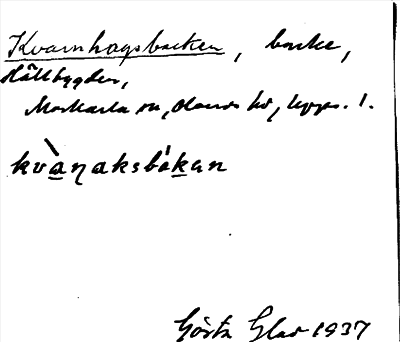 Kvarnhagsbacken, backe,
Hällbygden,
Markarla sn, Olands hd, Upps. l.
kvànaksbákan
Gösta Glas 1937